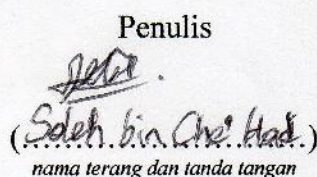 Penulis
(Soleh bin Che' Had.)
nama terang dan tanda tangan